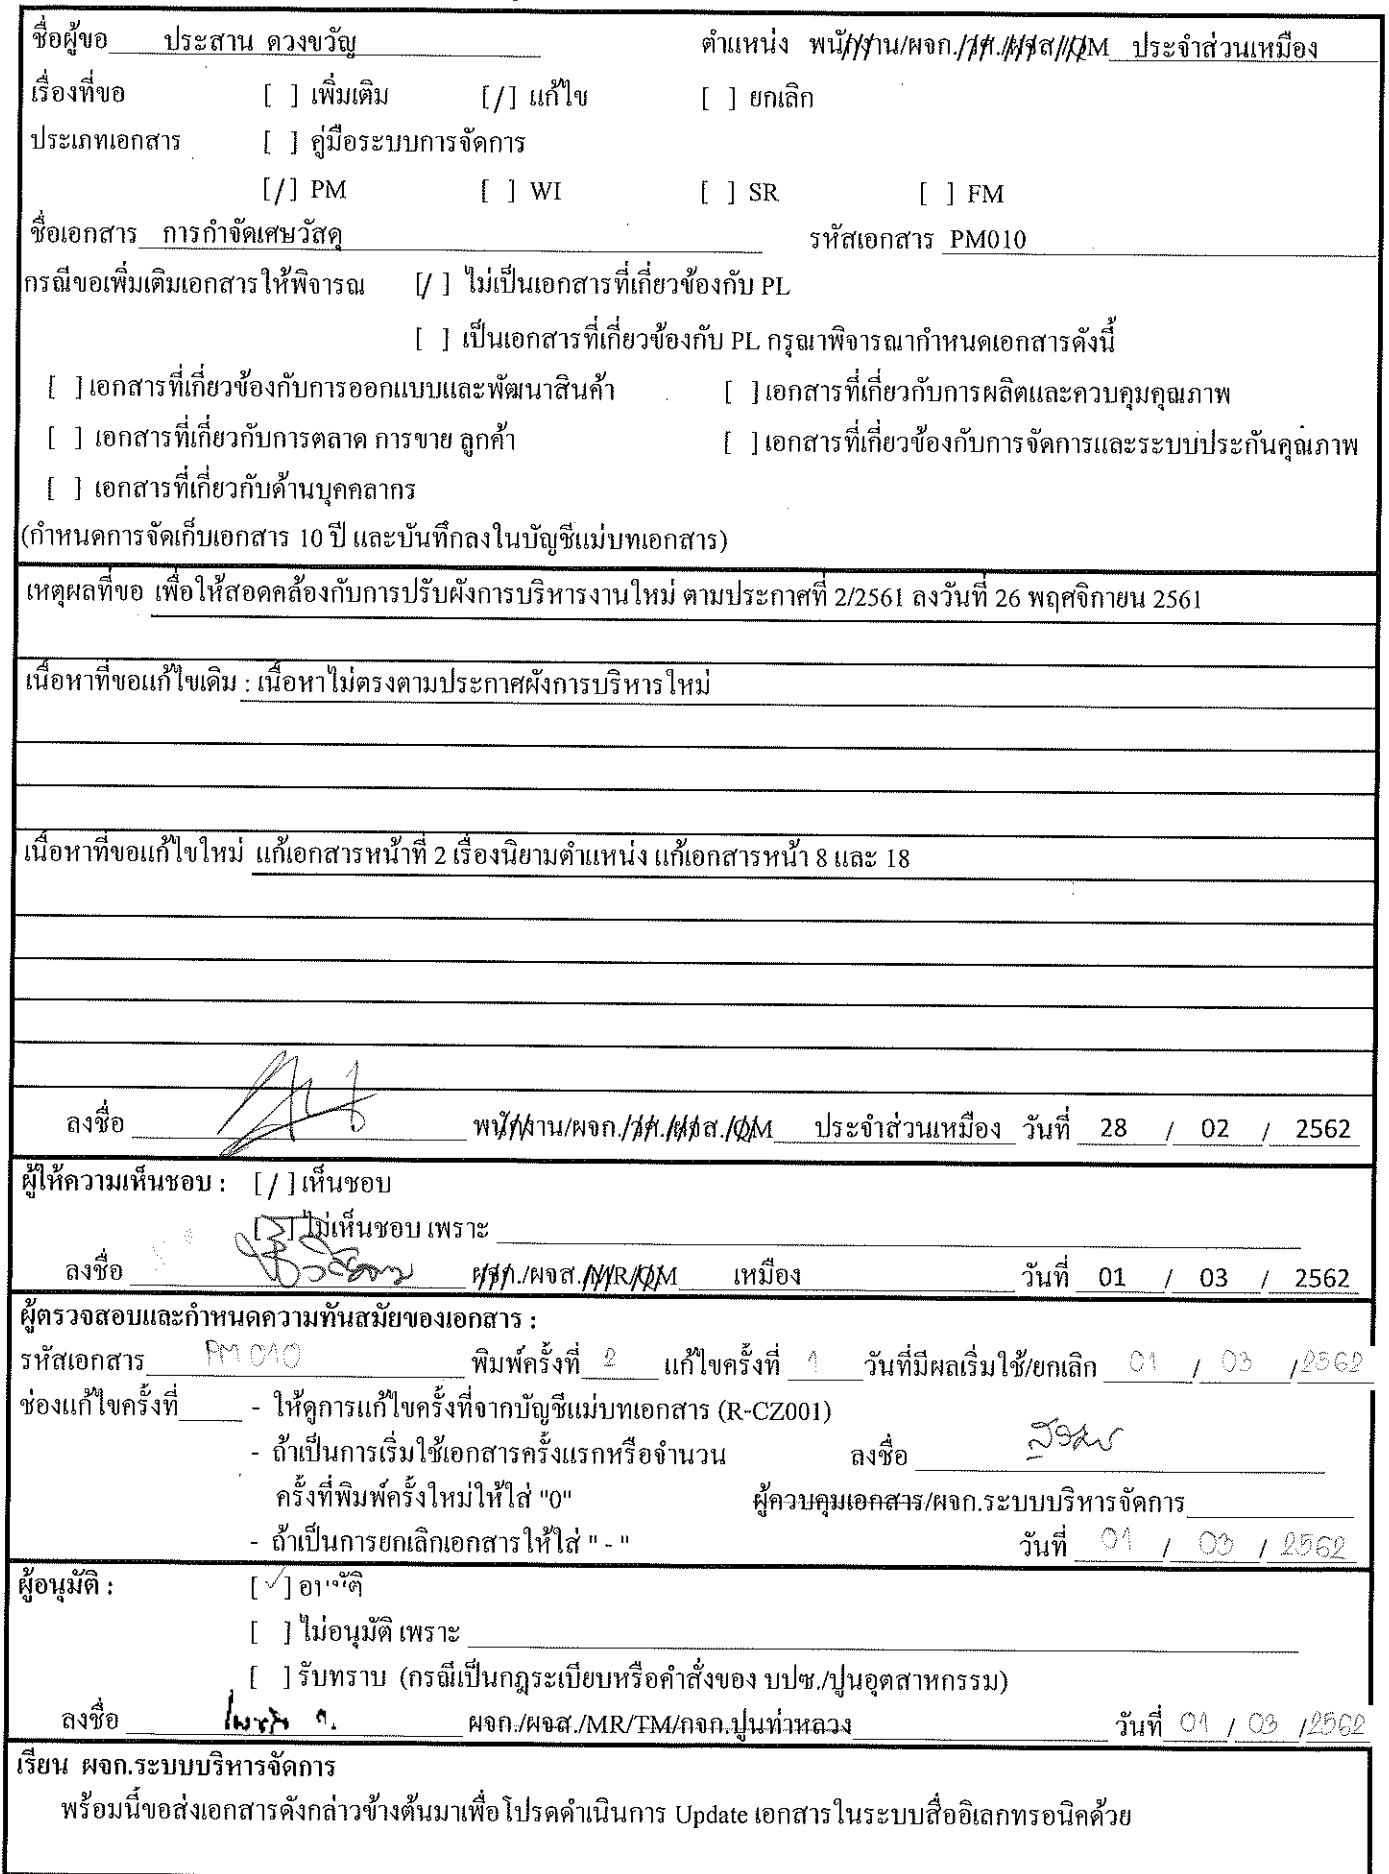 ชื่อผู้ขอ ประสาน ดวงขวัญ ตำแหน่ง พนักงาน/ผจก./วศ./ผจส/QM ประจำส่วนเหมือง
เรื่องที่ขอ [ ] เพิ่มเติม [/] แก้ไข [ ] ยกเลิก
ประเภทเอกสาร [ ] คู่มือระบบการจัดการ
[/] PM [ ] WI [ ] SR [ ] FM
ชื่อเอกสาร การกำจัดเศษวัสดุ รหัสเอกสาร PM010
กรณีขอเพิ่มเติมเอกสารให้พิจารณ [/ ] ไม่เป็นเอกสารที่เกี่ยวข้องกับ PL
[ ] เป็นเอกสารที่เกี่ยวข้องกับ PL กรุณาพิจารณากำหนดเอกสารดังนี้
[ ] เอกสารที่เกี่ยวข้องกับการออกแบบและพัฒนาสินค้า [ ] เอกสารที่เกี่ยวกับการผลิตและควบคุมคุณภาพ
[ ] เอกสารที่เกี่ยวกับการตลาด การขาย ลูกค้า [ ] เอกสารที่เกี่ยวข้องกับการจัดการและระบบประกันคุณภาพ
[ ] เอกสารที่เกี่ยวกับด้านบุคคลากร
(กำหนดการจัดเก็บเอกสาร 10 ปี และบันทึกลงในบัญชีแม่บทเอกสาร)
เหตุผลที่ขอ เพื่อให้สอดคล้องกับการปรับผังการบริหารงานใหม่ ตามประกาศที่ 2/2561 ลงวันที่ 26 พฤศจิกายน 2561
เนื้อหาที่ขอแก้ไขเดิม : เนื้อหาไม่ตรงตามประกาศผังการบริหารใหม่
เนื้อหาที่ขอแก้ไขใหม่ แก้เอกสารหน้าที่ 2 เรื่องนิยามตำแหน่ง แก้เอกสารหน้า 8 และ 18
ลงชื่อ พนักงาน/ผจก./วศ./ผจส./QM ประจำส่วนเหมือง วันที่ 28 / 02 / 2562
ผู้ให้ความเห็นชอบ : [ / ] เห็นชอบ
[ ] ไม่เห็นชอบ เพราะ
ลงชื่อ ผจก./ผจส./MR/QM เหมือง วันที่ 01 / 03 / 2562
ผู้ตรวจสอบและกำหนดความทันสมัยของเอกสาร :
รหัสเอกสาร PM 010 พิมพ์ครั้งที่ 2 แก้ไขครั้งที่ 1 วันที่มีผลเริ่มใช้/ยกเลิก 01 / 03 /2562
ช่องแก้ไขครั้งที่ - ให้ดูการแก้ไขครั้งที่จากบัญชีแม่บทเอกสาร (R-CZ001)
- ถ้าเป็นการเริ่มใช้เอกสารครั้งแรกหรือจำนวน ลงชื่อ
ครั้งที่พิมพ์ครั้งใหม่ให้ใส่ "0" ผู้ควบคุมเอกสาร/ผจก.ระบบบริหารจัดการ
- ถ้าเป็นการยกเลิกเอกสารให้ใส่ " - " วันที่ 01 / 03 / 2562
ผู้อนุมัติ : [ ✓ ] อนุมัติ
[ ] ไม่อนุมัติ เพราะ
[ ] รับทราบ (กรณีเป็นกฎระเบียบหรือคำสั่งของ บปซ./ปูนอุตสาหกรรม)
ลงชื่อ ผจก./ผจส./MR/TM/กจก.ปูนท่าหลวง วันที่ 01 / 03 /2562
เรียน ผจก.ระบบบริหารจัดการ
พร้อมนี้ขอส่งเอกสารดังกล่าวข้างต้นมาเพื่อโปรดดำเนินการ Update เอกสารในระบบสื่ออิเลกทรอนิคด้วย